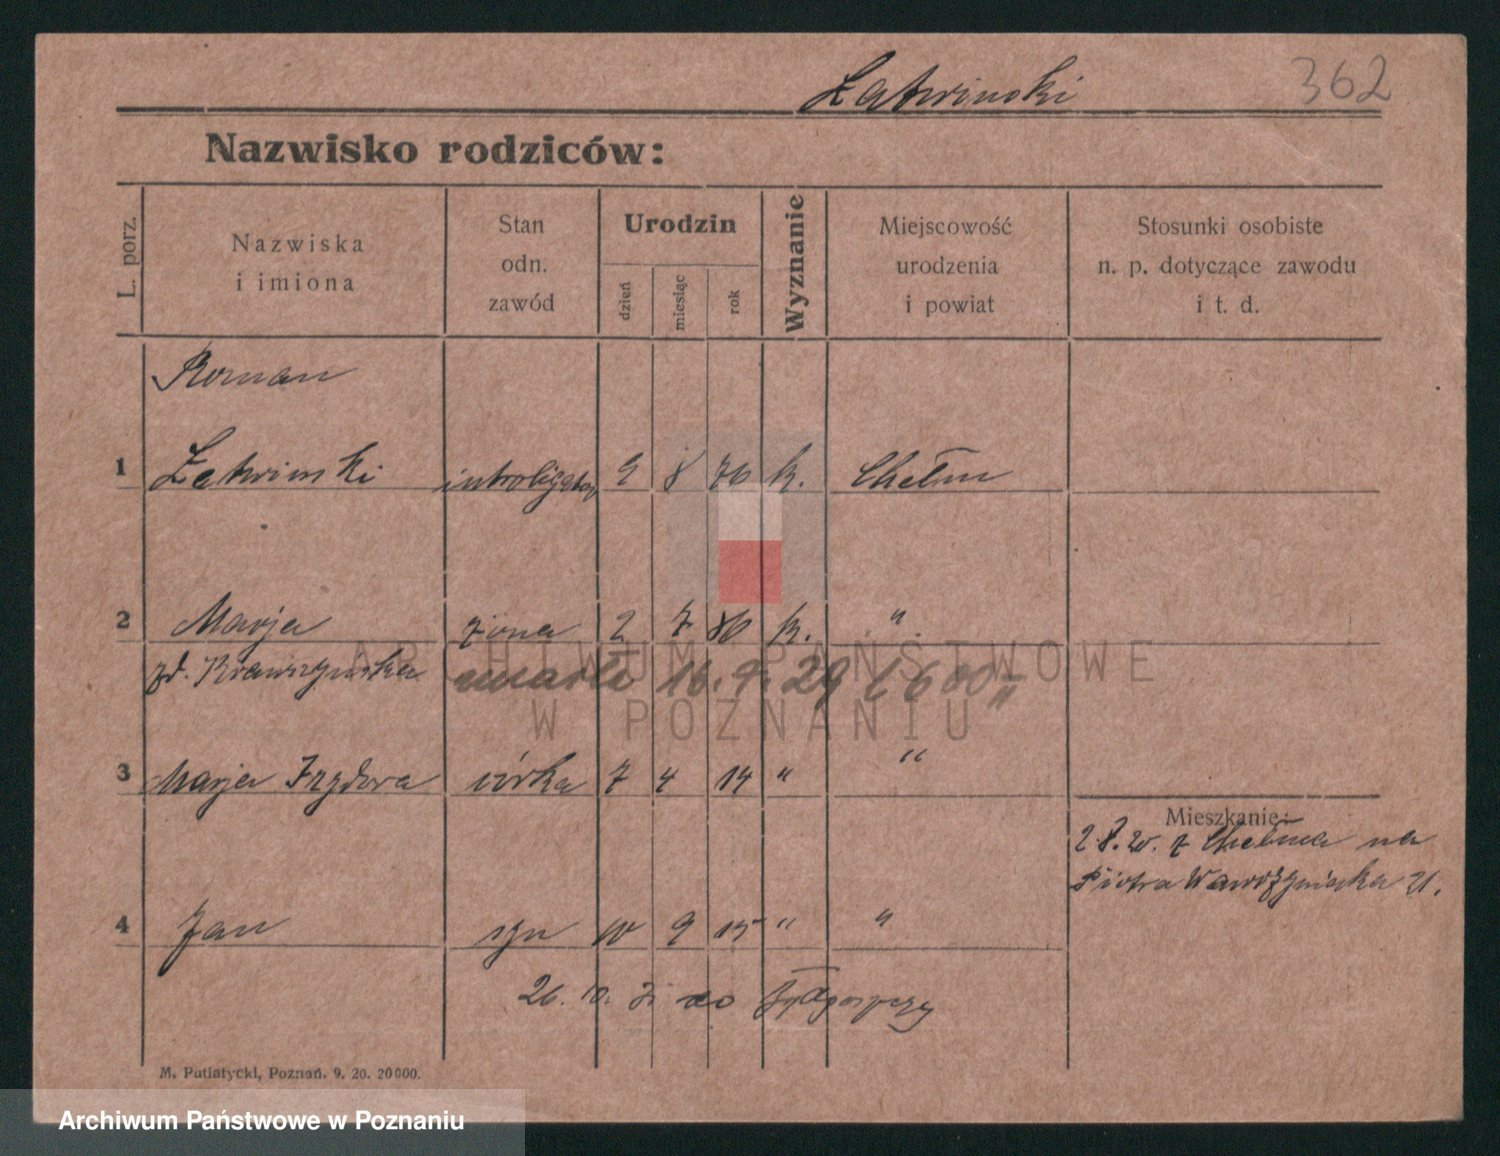 Łatwinski 362
Nazwisko rodziców:
L. porz.
Nazwiska
i imiona
Stan
odn.
zawód
Urodzin
dzień
miesiąc
rok
Wyznanie
Miejscowość
urodzenia
i powiat
Stosunki osobiste
n. p. dotyczące zawodu
i t. d.
Roman
1 Łatwinski introligator 8 70 k. Chełm
2 Marja żona 2 7 k. "
umarła 16. 9. 29
3 Marja Izydora córka 7 4 14 " "
Mieszkanie:
2.8. z Chełma na
Piotra Wawrzyniaka 21.
4 Jan syn 10 9 15 " "
26. do Bydgoszczy
M. Putiatycki, Poznań. 9. 20. 20000.
ARCHIWUM PAŃSTWOWE
W POZNANIU
Archiwum Państwowe w Poznaniu